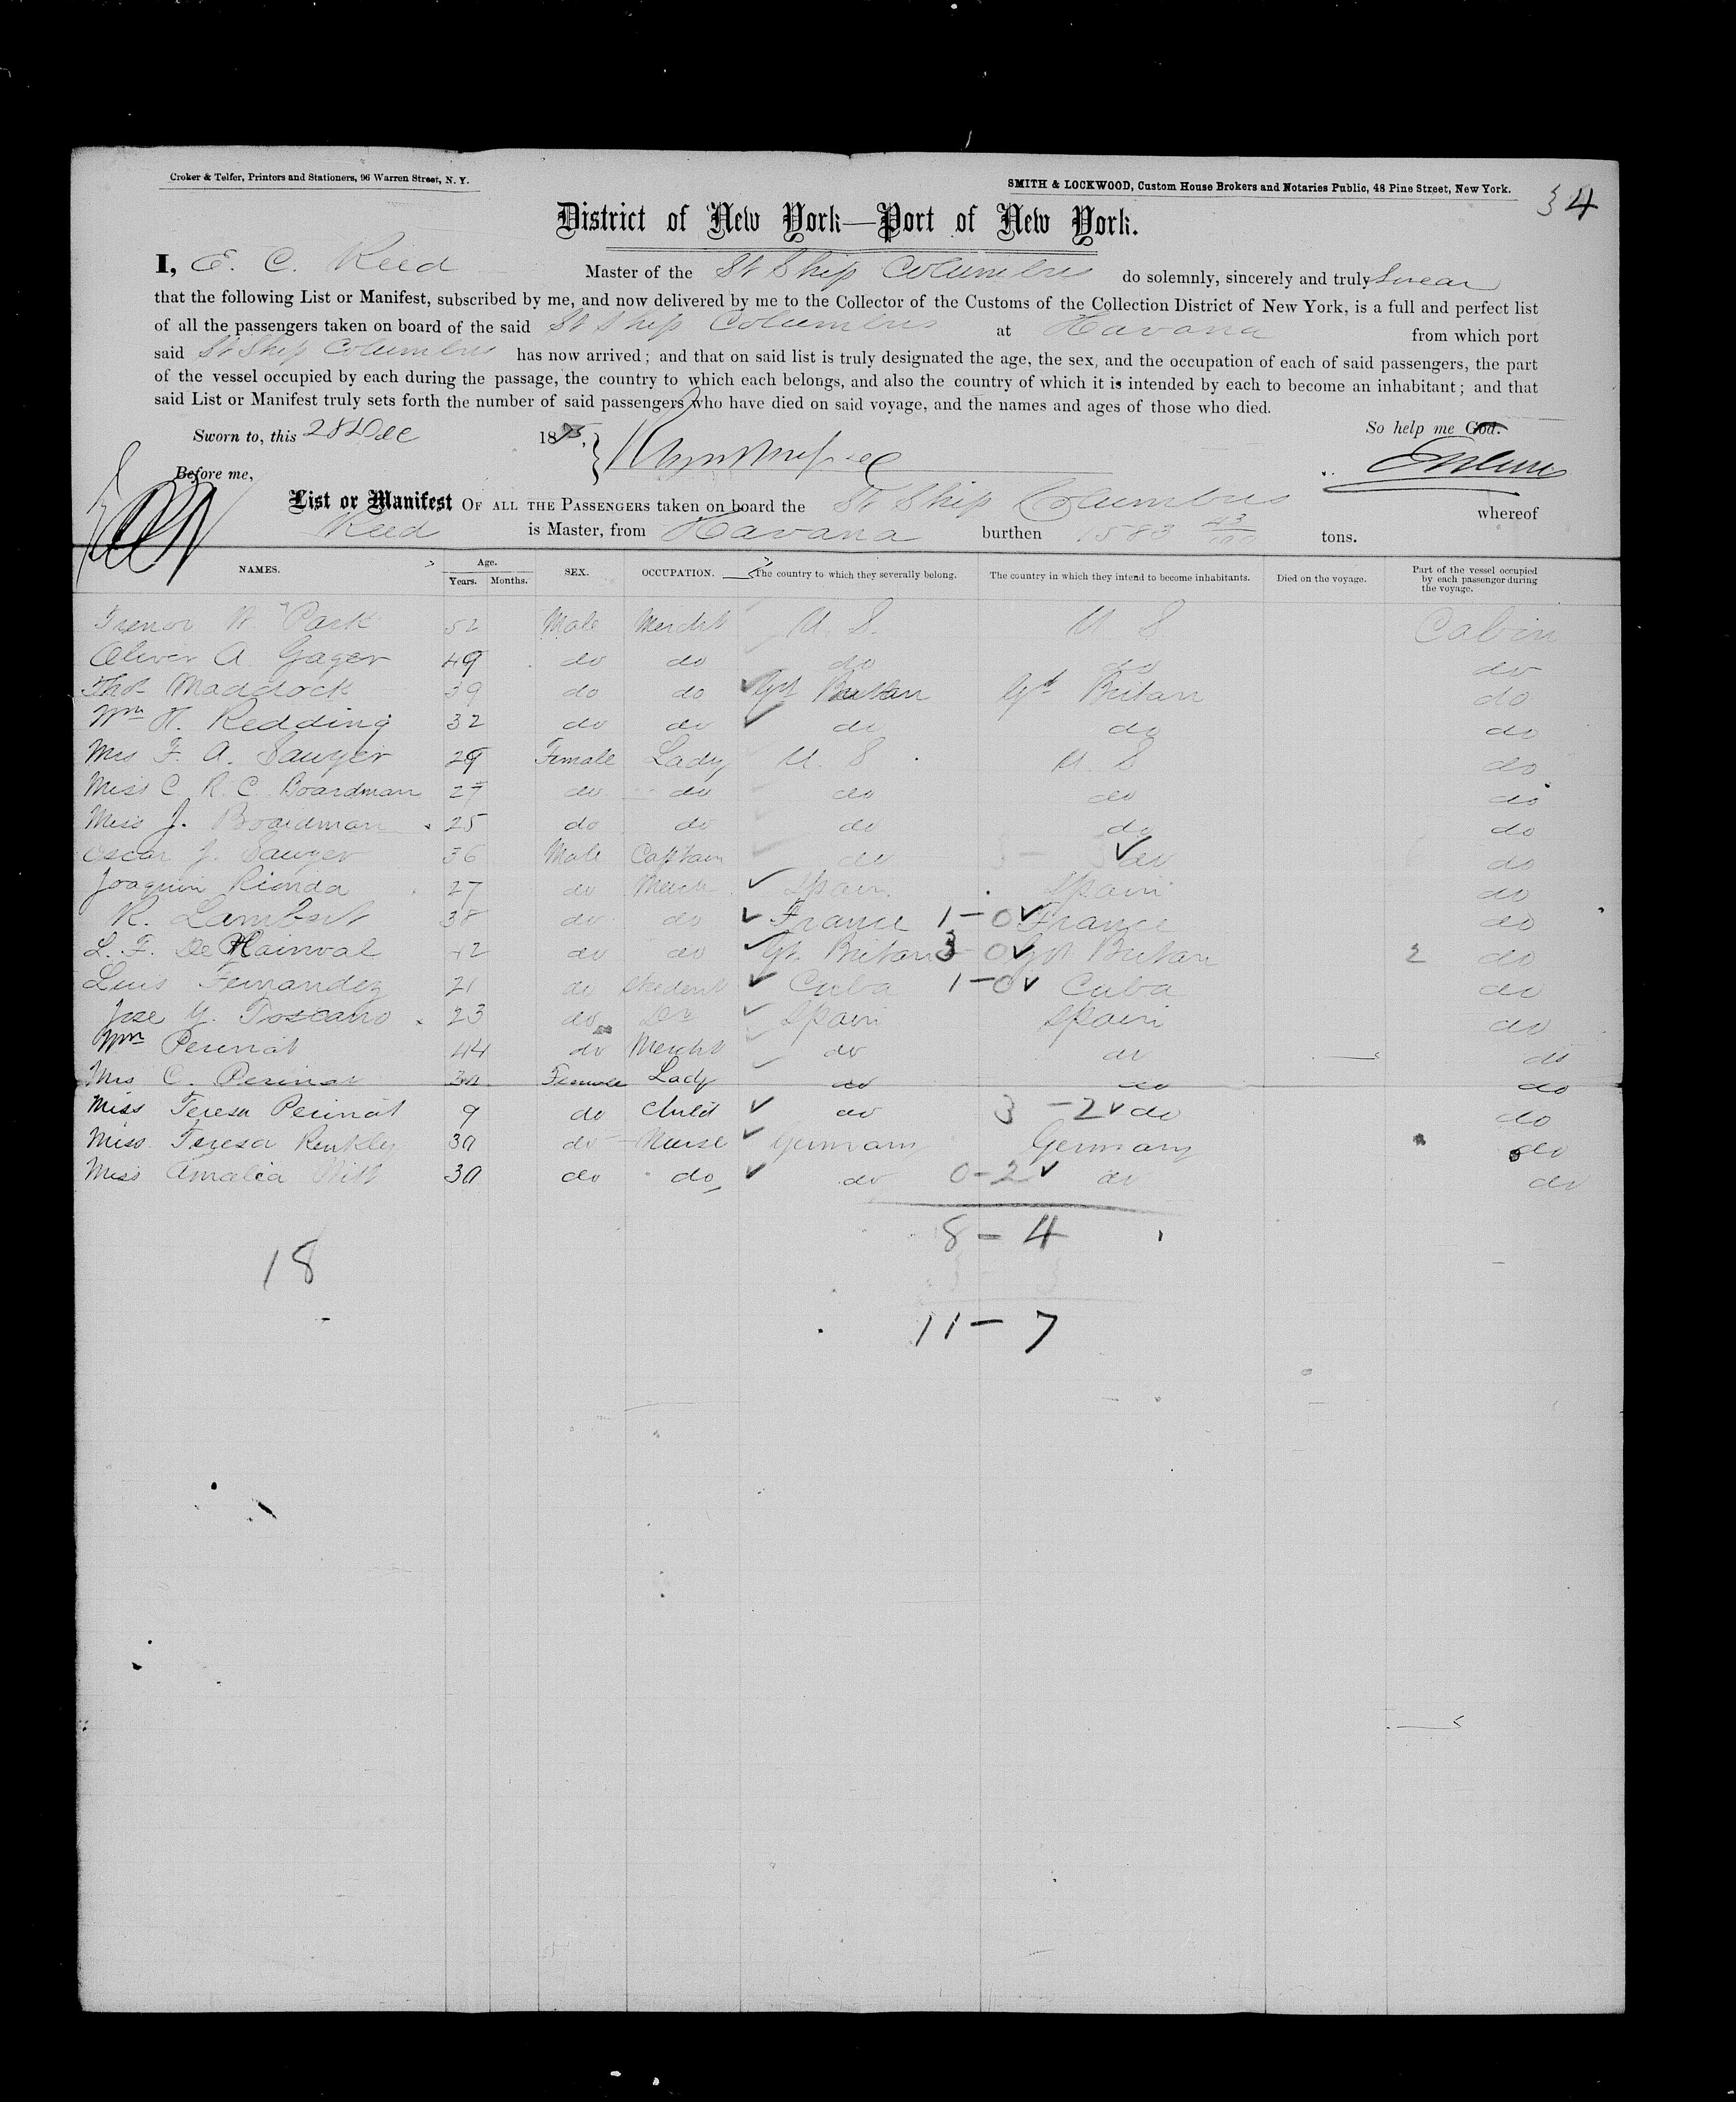 Croker & Telfer, Printers and Stationers, 96 Warren Street, N. Y.
SMITH & LOCKWOOD, Custom House Brokers and Notaries Public, 48 Pine Street, New York.
34
District of New York—Port of New York.
I, E. C. Reed Master of the St Ship Columbus do solemnly, sincerely and truly Swear
that the following List or Manifest, subscribed by me, and now delivered by me to the Collector of the Customs of the Collection District of New York, is a full and perfect list
of all the passengers taken on board of the said St Ship Columbus at Havana from which port
said St Ship Columbus has now arrived; and that on said list is truly designated the age, the sex, and the occupation of each of said passengers, the part
of the vessel occupied by each during the passage, the country to which each belongs, and also the country of which it is intended by each to become an inhabitant; and that
said List or Manifest truly sets forth the number of said passengers who have died on said voyage, and the names and ages of those who died.
Sworn to, this 28 Dec 1875, So help me God.
Before me,
List or Manifest OF ALL THE PASSENGERS taken on board the St Ship Columbus whereof
Reed is Master, from Havana burthen 1583 43/100 tons.
NAMES. Age. Years. Months. SEX. OCCUPATION. The country to which they severally belong. The country in which they intend to become inhabitants. Died on the voyage. Part of the vessel occupied by each passenger during the voyage.
Trenor W. Park 52 Male Mercht U. S. U S Cabin
Oliver A. Gager 49 do do do do do
Thos Maddock 39 do do Gt Britan Gt Britan do
Wm H. Redding 32 do do do do do
Mrs F. A. Sawyer 29 Female Lady U. S U S do
Miss C. R. C. Boardman 27 do do do do do
Miss J. Boardman 25 do do do do do
Oscar J. Sawyer 36 Male Captain do do do
Joaquin Rionda 27 do Merch Spain Spain do
R. Lambert 38 do do France 1–0 France do
L. F. De Hainval 42 do do Gt. Britan 3 0 Gt Britan 2 do
Luis Fernandez 21 do Student Cuba 1–0 Cuba do
Jose Y. Toscano 23 do Dr Spain Spain do
Wm Perinat 44 do Mercht do do do
Mrs C. Perinat 30 Female Lady do do do
Miss Teresa Perinat 9 do Child do 3 – 2 do do
Miss Teresa Renkley 30 do Nurse Germany Germany do
Miss Amalia Witt 30 do do do 0–2 do do
8 – 4
18
11 – 7